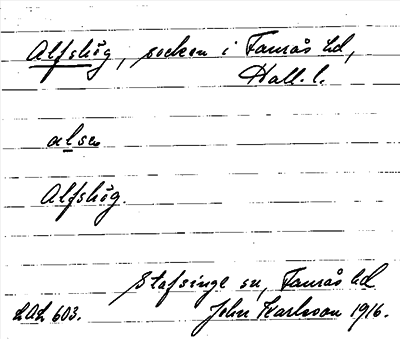 Alfshög, socken i Faurås hd,
Hall. l.
alsa
Alfshög.
Stafsinge sn, Faurås hd
LAL 603. John Karlsson 1916.